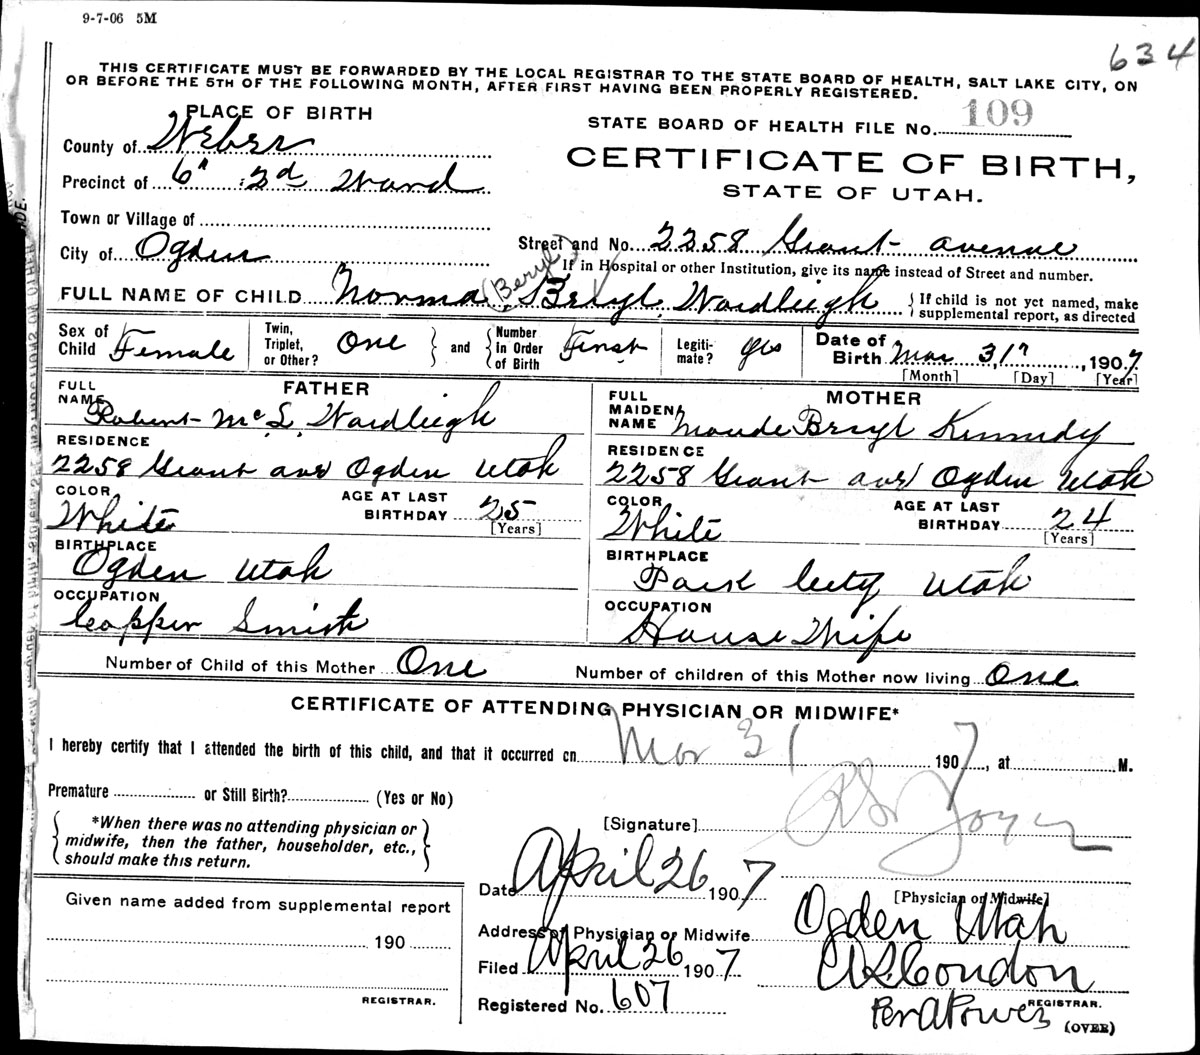 9-7-06 5M
634
THIS CERTIFICATE MUST BE FORWARDED BY THE LOCAL REGISTRAR TO THE STATE BOARD OF HEALTH, SALT LAKE CITY, ON
OR BEFORE THE 5TH OF THE FOLLOWING MONTH, AFTER FIRST HAVING BEEN PROPERLY REGISTERED.
PLACE OF BIRTH
STATE BOARD OF HEALTH FILE NO. 109
County of Weber
CERTIFICATE OF BIRTH,
Precinct of 6" 2d Ward
STATE OF UTAH.
Town or Village of
Street and No. 2258 Grant avenue
City of Ogden
If in Hospital or other Institution, give its name instead of Street and number.
FULL NAME OF CHILD Norma (Beryl) Beryl Wardleigh
If child is not yet named, make
supplemental report, as directed
Sex of Child Female
Twin, Triplet, or Other? One
and
Number in Order of Birth First
Legiti- mate? yes
Date of Birth Mar 31", 1907
[Month] [Day] [Year]
FATHER
FULL NAME Robert McL. Wardleigh
RESIDENCE
2258 Grant ave Ogden Utah
COLOR White
AGE AT LAST BIRTHDAY 25
[Years]
BIRTHPLACE
Ogden Utah
OCCUPATION
Copper Smith
MOTHER
FULL MAIDEN NAME Maude Beryl Kennedy
RESIDENCE
2258 Grant ave Ogden Utah
COLOR White
AGE AT LAST BIRTHDAY 24
[Years]
BIRTHPLACE
Park City Utah
OCCUPATION
House Wife
Number of Child of this Mother One
Number of children of this Mother now living One
CERTIFICATE OF ATTENDING PHYSICIAN OR MIDWIFE*
I hereby certify that I attended the birth of this child, and that it occurred on Mar 31 1907, at M.
Premature or Still Birth? (Yes or No)
*When there was no attending physician or
midwife, then the father, householder, etc.,
should make this return.
[Signature] Joyce
Date April 26 1907
[Physician or Midwife]
Given name added from supplemental report
190
REGISTRAR.
Address of Physician or Midwife Ogden Utah
Filed April 26 1907
Condon
REGISTRAR.
Registered No. 607
Per A Power
(OVER)